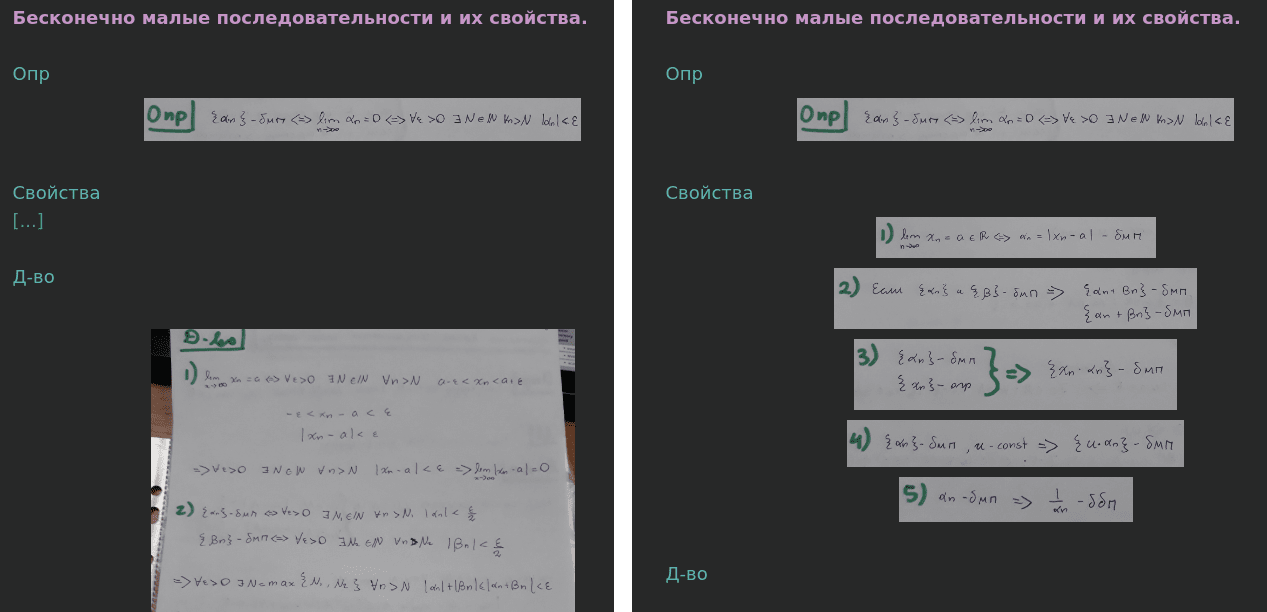 Бесконечно малые последовательности и их свойства.
Опр
Опр {αn} - δмп <=> lim n→∞ αn = 0 <=> ∀ε>0 ∃N∈ℕ ∀n>N |αn|<ε
Свойства
[...]
Д-во
Д-во
1) lim n→∞ xn = a <=> ∀ε>0 ∃N∈ℕ ∀n>N a-ε < xn < a+ε
-ε < xn - a < ε
|xn - a| < ε
=> ∀ε>0 ∃N∈ℕ ∀n>N |xn - a| < ε => lim n→∞ |xn - a| = 0
2) {αn} - δмп <=> ∀ε>0 ∃N1∈ℕ ∀n>N1 |αn| < ε/2
{βn} - δмп <=> ∀ε>0 ∃N2∈ℕ ∀n>N2 |βn| < ε/2
=> ∀ε>0 ∃N=max{N1, N2} ∀n>N |αn|+|βn|≤|αn+βn|<ε
Бесконечно малые последовательности и их свойства.
Опр
Опр {αn} - δмп <=> lim n→∞ αn = 0 <=> ∀ε>0 ∃N∈ℕ ∀n>N |αn|<ε
Свойства
1) lim n→∞ xn = a ∈ ℝ <=> αn = |xn - a| - δмп
2) Если {αn} и {β} - δмп => {αn + βn} - δмп
{αn + βn} - δмп
3) {αn} - δмп
{xn} - огр } => {xn · αn} - δмп
4) {αn} - δмп , u - const => {u·αn} - δмп
5) αn - δмп => 1/αn - δδп
Д-во